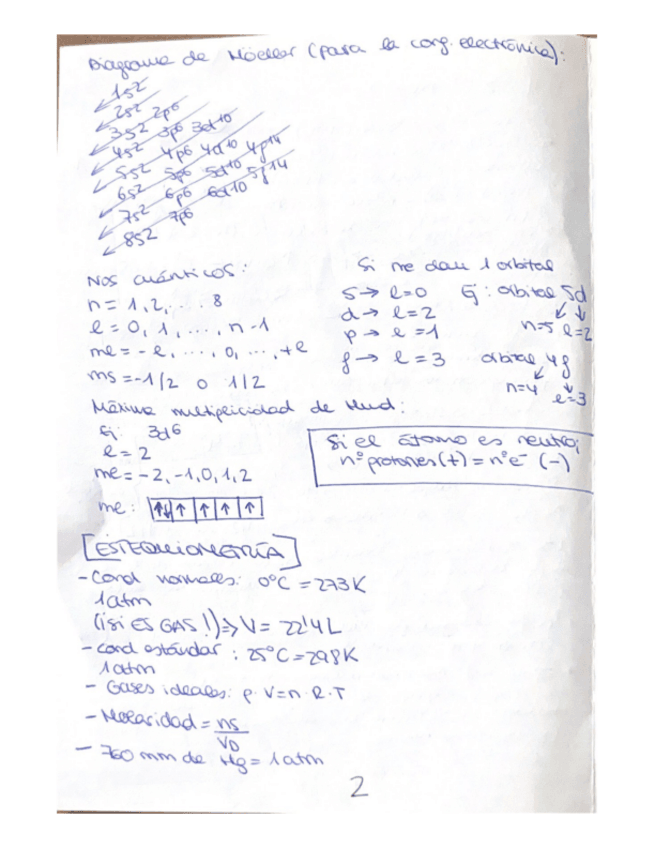 Diagrama de Möeller (para la conf. electrónica):
1s2
2s2 2p6
3s2 3p6 3d10
4s2 4p6 4d10 4f14
5s2 5p6 5d10 5f14
6s2 6p6 6d10
7s2 7p6
8s2
Nos cuánticos:
n = 1, 2, ... 8
l = 0, 1, ..., n-1
ml = -l, ..., 0, ..., +l
ms = -1/2 o 1/2
Si me dan 1 orbital
s → l=0 Ej: orbital 5d
d → l=2 n=5 l=2
p → l=1
f → l=3 orbital 4f
n=4 l=3
Máxima multiplicidad de Hund:
Ej: 3d6
l = 2
ml = -2, -1, 0, 1, 2
ml: ↑↓ ↑ ↑ ↑ ↑
Si el átomo es neutro;
nº protones (+) = nº e- (-)
[ESTEQUIOMETRÍA]
- Cond normales: 0ºC = 273K
1atm
(¡SI ES GAS!) => V = 22'4L
- cond estándar: 25ºC = 298K
1atm
- Gases ideales: p·V=n·R·T
- Molaridad = ns
VD
- 760 mm de Hg = 1atm
2